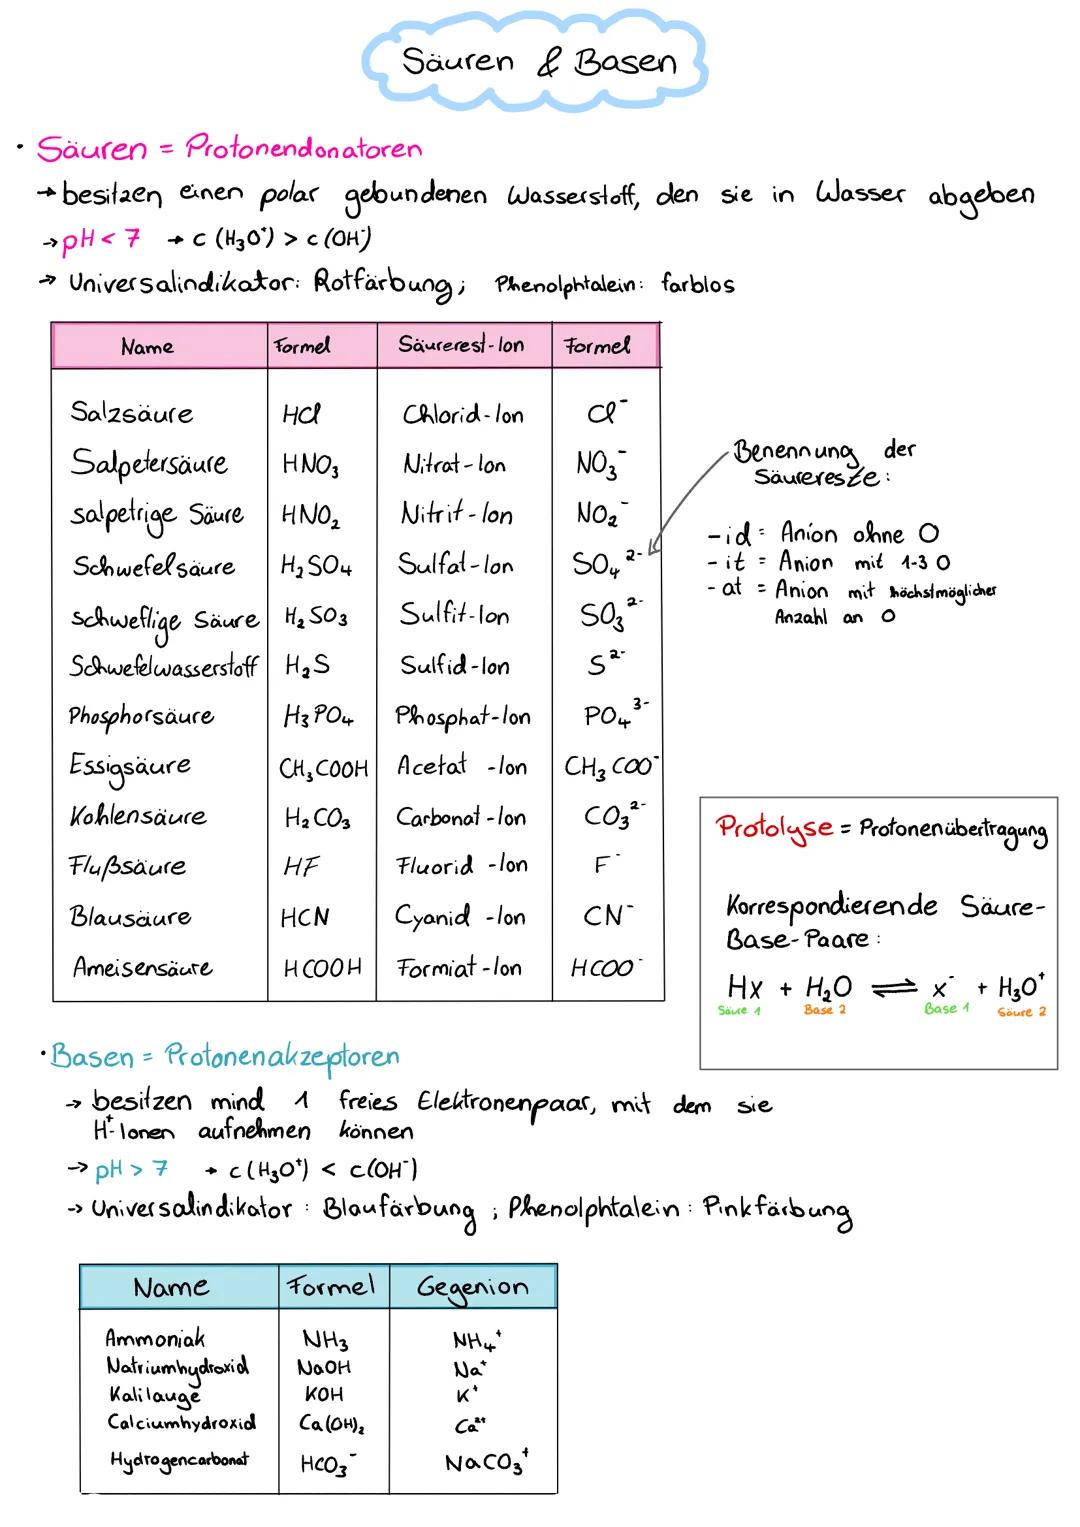 Säuren & Basen
• Säuren = Protonendonatoren
→ besitzen einen polar gebundenen Wasserstoff, den sie in Wasser abgeben
→ pH < 7 → c (H₃O⁺) > c (OH⁻)
→ Universalindikator: Rotfärbung; Phenolphtalein: farblos
Name Formel Säurerest-Ion Formel
Salzsäure HCl Chlorid-Ion Cl⁻
Salpetersäure HNO₃ Nitrat-Ion NO₃⁻
salpetrige Säure HNO₂ Nitrit-Ion NO₂⁻
Schwefelsäure H₂SO₄ Sulfat-Ion SO₄²⁻
schweflige Säure H₂SO₃ Sulfit-Ion SO₃²⁻
Schwefelwasserstoff H₂S Sulfid-Ion S²⁻
Phosphorsäure H₃PO₄ Phosphat-Ion PO₄³⁻
Essigsäure CH₃COOH Acetat-Ion CH₃COO⁻
Kohlensäure H₂CO₃ Carbonat-Ion CO₃²⁻
Flußsäure HF Fluorid-Ion F⁻
Blausäure HCN Cyanid-Ion CN⁻
Ameisensäure HCOOH Formiat-Ion HCOO⁻
Benennung der
Säurereste:
-id = Anion ohne O
-it = Anion mit 1-3 O
-at = Anion mit höchstmöglicher
Anzahl an O
Protolyse = Protonenübertragung
Korrespondierende Säure-
Base-Paare:
Hx + H₂O ⇌ x⁻ + H₃O⁺
Säure 1 Base 2 Base 1 Säure 2
• Basen = Protonenakzeptoren
→ besitzen mind 1 freies Elektronenpaar, mit dem sie
H⁺-Ionen aufnehmen können
→ pH > 7 → c (H₃O⁺) < c(OH⁻)
→ Universalindikator: Blaufärbung; Phenolphtalein: Pinkfärbung
Name Formel Gegenion
Ammoniak NH₃ NH₄⁺
Natriumhydroxid NaOH Na⁺
Kalilauge KOH K⁺
Calciumhydroxid Ca(OH)₂ Ca²⁺
Hydrogencarbonat HCO₃⁻ NaCO₃⁺